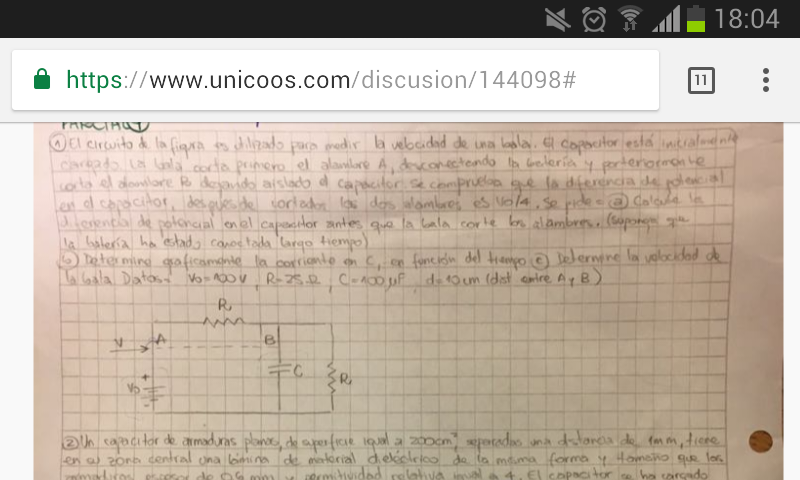 18:04
https://www.unicoos.com/discusion/144098#
11
PARCIAL 1
① El circuito de la figura es utilizado para medir la velocidad de una bala. El capacitor está inicialmente
cargado. La bala corta primero el alambre A, desconectando la batería y porteriormente
corta el alambre B dejando aislado el capacitor. Se comprueba que la diferencia de potencial
en el capacitor, despues de cortados los dos alambres es V0/4. Se pide = ⓐ Calcule la
diferencia de potencial en el capacitor antes que la bala corte los alambres. (suponga que
la batería ha estado conectada largo tiempo)
ⓑ Determine graficamente la corriente en C, en función del tiempo ⓒ Determine la velocidad de
la bala Datos= V0=100V, R=25Ω, C=100μF d=10cm (dist entre A y B)
R
V A B
C
V0 + R
-
② Un capacitor de armaduras planas, de superficie igual a 200cm², separadas una distancia de 1mm, tiene
en su zona central una lámina de material dieléctrico de la misma forma y tamaño que las
armaduras espesor de 0,6 mm y permitividad relativa igual a 4. El capacitor se ha cargado